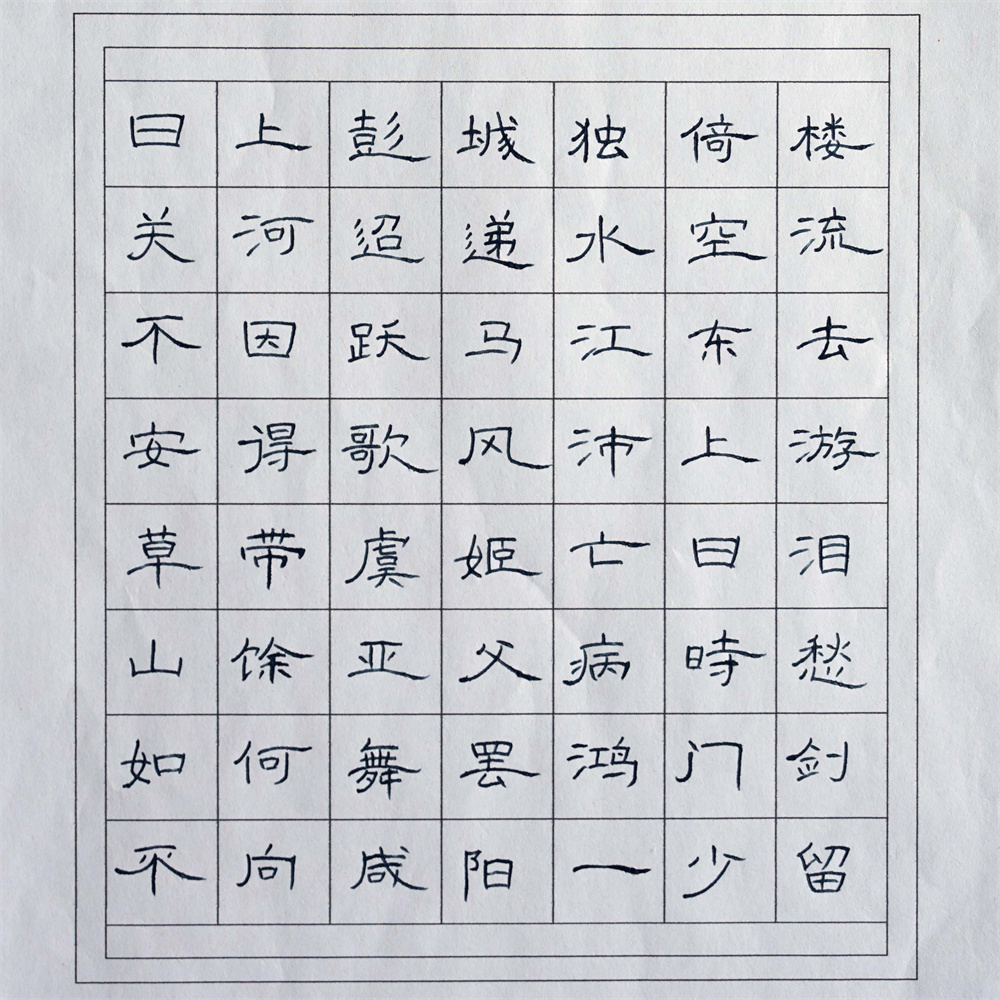 日上彭城独倚楼
关河迢递水空流
不因跃马江东去
安得歌风沛上游
草带虞姬亡日泪
山馀亚父病時愁
如何舞罢鸿门剑
不向咸阳一少留